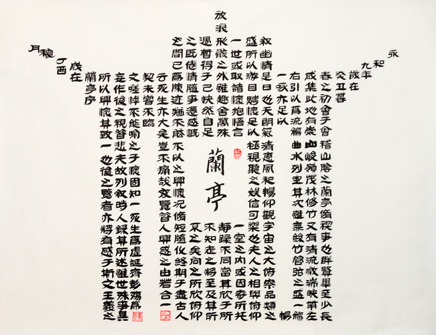 永
和
九年
歲在
癸丑暮
春之初會于會稽山陰之蘭亭脩稧事也群賢畢至少長
咸集此地有崇山峻嶺茂林修竹又有清流激湍映帶左
右引以為流觴曲水列坐其次雖無絲竹管弦之盛一觴
一詠亦足以
暢
敘幽情是日也天朗氣清惠風和暢仰觀宇宙之大俯察品類之
盛所以遊目騁懷足以極視聽之娛信可樂也夫人之相與俯仰
一世或取諸懷抱悟言
一室之內或因寄所托
放浪
形骸之外雖趣舍萬殊
靜躁不同當其欣於所
遇暫得于己快然自足
不知老之將至及其所
之既倦情隨事遷感慨係
之矣向之所欣俯仰
之間已為陳迹猶不能不以之興懷況脩短隨化終期于盡古人
云死生亦大矣豈不痛哉每覽昔人興感之由若合一
契未嘗不臨
文嗟悼不能喻之于懷固知一死生為虛誕齊彭殤為
妄作後之視昔悲夫故列敘時人錄其所述雖世殊事異
所以興懷其致一也後之覽者亦將有感于斯文王羲之
蘭亭序
歲在
丁酉
月
蘭亭